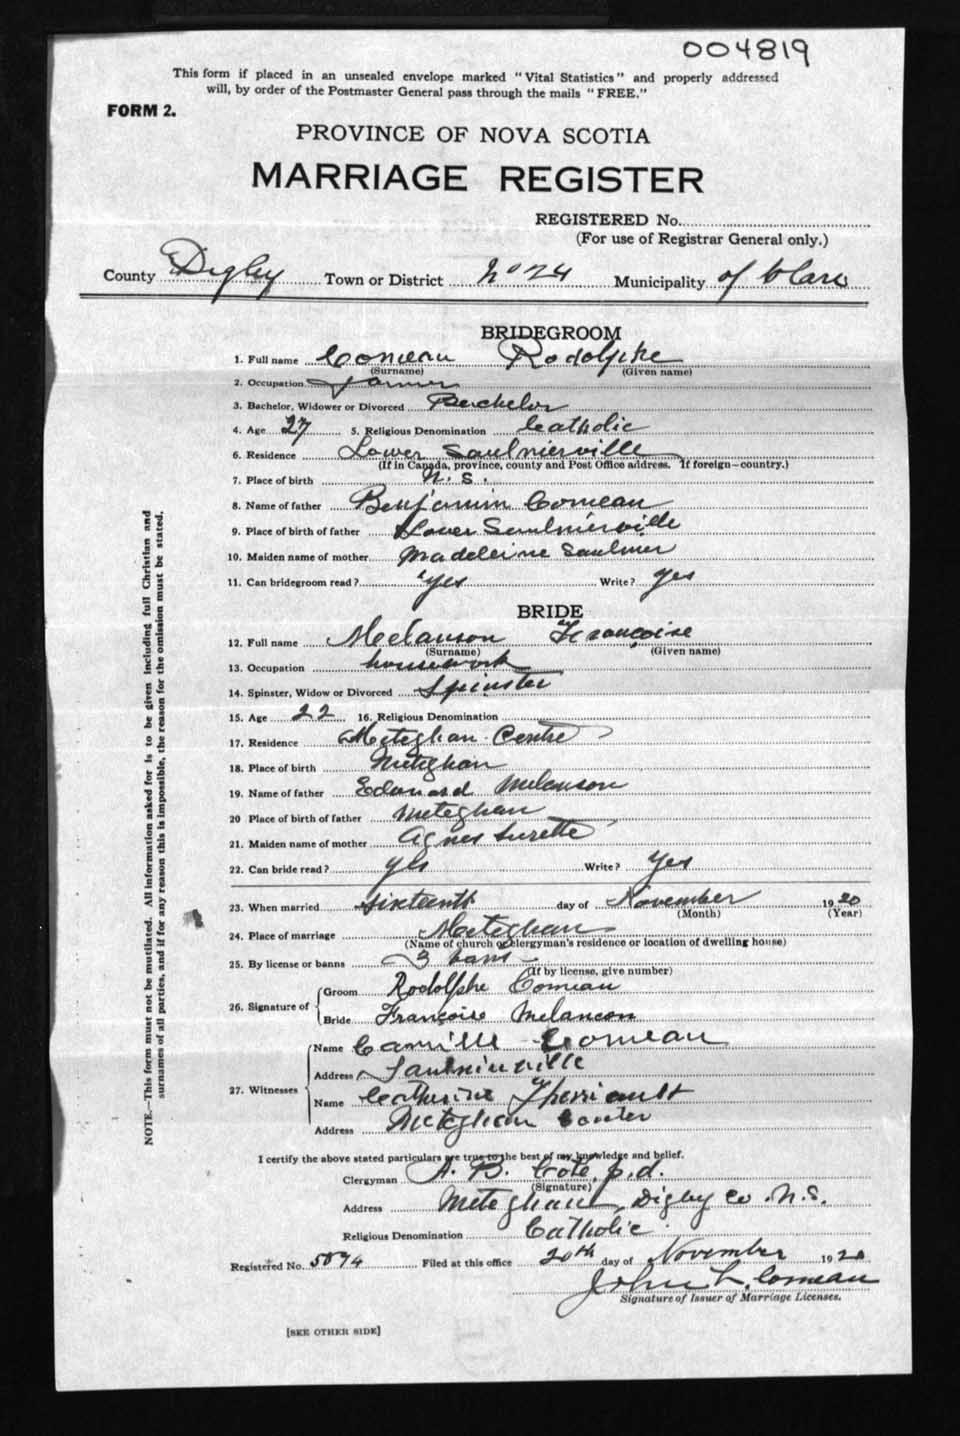 004819
This form if placed in an unsealed envelope marked "Vital Statistics" and properly addressed
will, by order of the Postmaster General pass through the mails "FREE."
FORM 2.
PROVINCE OF NOVA SCOTIA
MARRIAGE REGISTER
REGISTERED No.
(For use of Registrar General only.)
County Digby Town or District No 24 Municipality of Clare
BRIDEGROOM
1. Full name Comeau Rodolphe
(Surname) (Given name)
2. Occupation Farmer
3. Bachelor, Widower or Divorced Bachelor
4. Age 27 5. Religious Denomination Catholic
6. Residence Lower Saulnierville
(If in Canada, province, county and Post Office address. If foreign—country.)
7. Place of birth N.S.
8. Name of father Benjamin Comeau
9. Place of birth of father Lower Saulnierville
10. Maiden name of mother Madeleine Saulnier
11. Can bridegroom read? Yes Write? Yes
BRIDE
12. Full name Melanson Françoise
(Surname) (Given name)
13. Occupation housework
14. Spinster, Widow or Divorced Spinster
15. Age 22 16. Religious Denomination
17. Residence Meteghan Centre
18. Place of birth Meteghan
19. Name of father Edouard Melanson
20 Place of birth of father Meteghan
21. Maiden name of mother Agnes Surette
22. Can bride read? yes Write? Yes
23. When married Sixteenth day of November 1920
(Month) (Year)
24. Place of marriage Meteghan
(Name of church or clergyman's residence or location of dwelling house)
25. By license or banns 3 bans
(If by license, give number)
26. Signature of Groom Rodolphe Comeau
Bride Françoise Melancon
27. Witnesses Name Camille Comeau
Address Saulnierville
Name Catherine Therriault
Address Meteghan Center
I certify the above stated particulars are true to the best of my knowledge and belief.
Clergyman A. B. Cote, p.d.
(Signature)
Address Meteghan, Digby Co. N.S.
Religious Denomination Catholic
Registered No. 5074 Filed at this office 20th day of November 1920
John L. Comeau
Signature of Issuer of Marriage Licenses.
[SEE OTHER SIDE]
NOTE.—This form must not be mutilated. All information asked for is to be given including full Christian and
surnames of all parties, and if for any reason this is impossible, the reason for the omission must be stated.